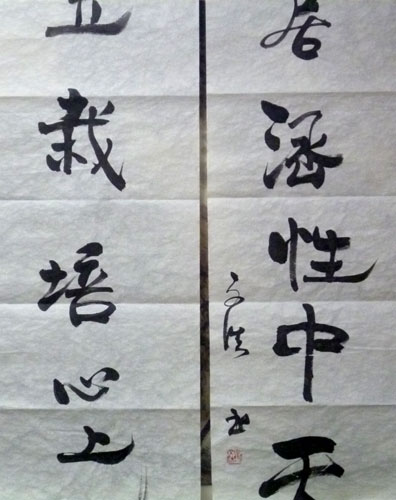 居涵性中天
书
栽培心上